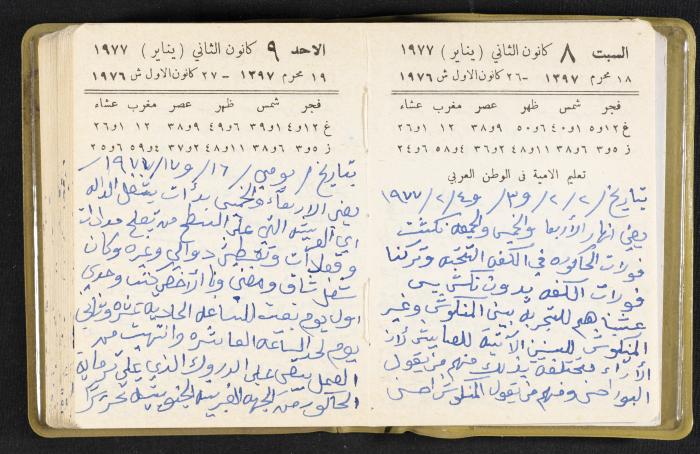 السبت ٨ كانون الثاني ( يناير ) ١٩٧٧
١٨ محرم ١٣٩٧ - ٢٦ كانون الاول ش ١٩٧٦
فجر شمس ظهر عصر مغرب عشاء
غ ١٢و٥ ١و٤٠ ٦و٥٠ ٩و٣٨ ١٢ ١و٢٦
ز ٥و٣ ٦و٣٨ ١١و٤٨ ٢و٣٦ ٤و٥٨ ٦و٢٤
تعليم الامية في الوطن العربي
بتاريخ / ٢ / ٢ / و٣ / و٤ / ٢ / ١٩٧٧
يعني انهار الأربعا والخميس والجمعه نكشت
فولات الحاكوره في الكفه التحته وتركنا
فولات الكفه بدون نكش بس
عشبناهم للتجربة بين المنكوش وغير
المنكوش للسنين الآتية للصابيش لأن
الأراء مختلفة بذلك فمنهم من يقول
البور احسن ومنهم من يقول المنكوش احسن
الاحد ٩ كانون الثاني ( يناير ) ١٩٧٧
١٩ محرم ١٣٩٧ - ٢٧ كانون الاول ش ١٩٧٦
فجر شمس ظهر عصر مغرب عشاء
غ ١٢و٤ ١و٣٩ ٦و٤٩ ٩و٣٨ ١٢ ١و٢٦
ز ٥و٣ ٦و٣٨ ١١و٤٨ ٢و٣٧ ٤و٥٩ ٦و٢٥
بتاريخ / يومي / ١٦ / و١٧ / ١٩٧٧ /
يعني الإربعاء والخميس بدأت بتنقل الداله
اي العنبيه التي على السطح من
و وتغطيز دوالي وغره وكان
شغل شاق ومضني وانا اركض كنت وحدي
اول يوم بقيت للساعه الحاديه عشره وثاني
يوم لحد الساعه العاشره وانتهت من
العمل بتقي على الدروك الذي يلي
الحاكوره من الجهه الغربيه الجنوبيه تحريرًا